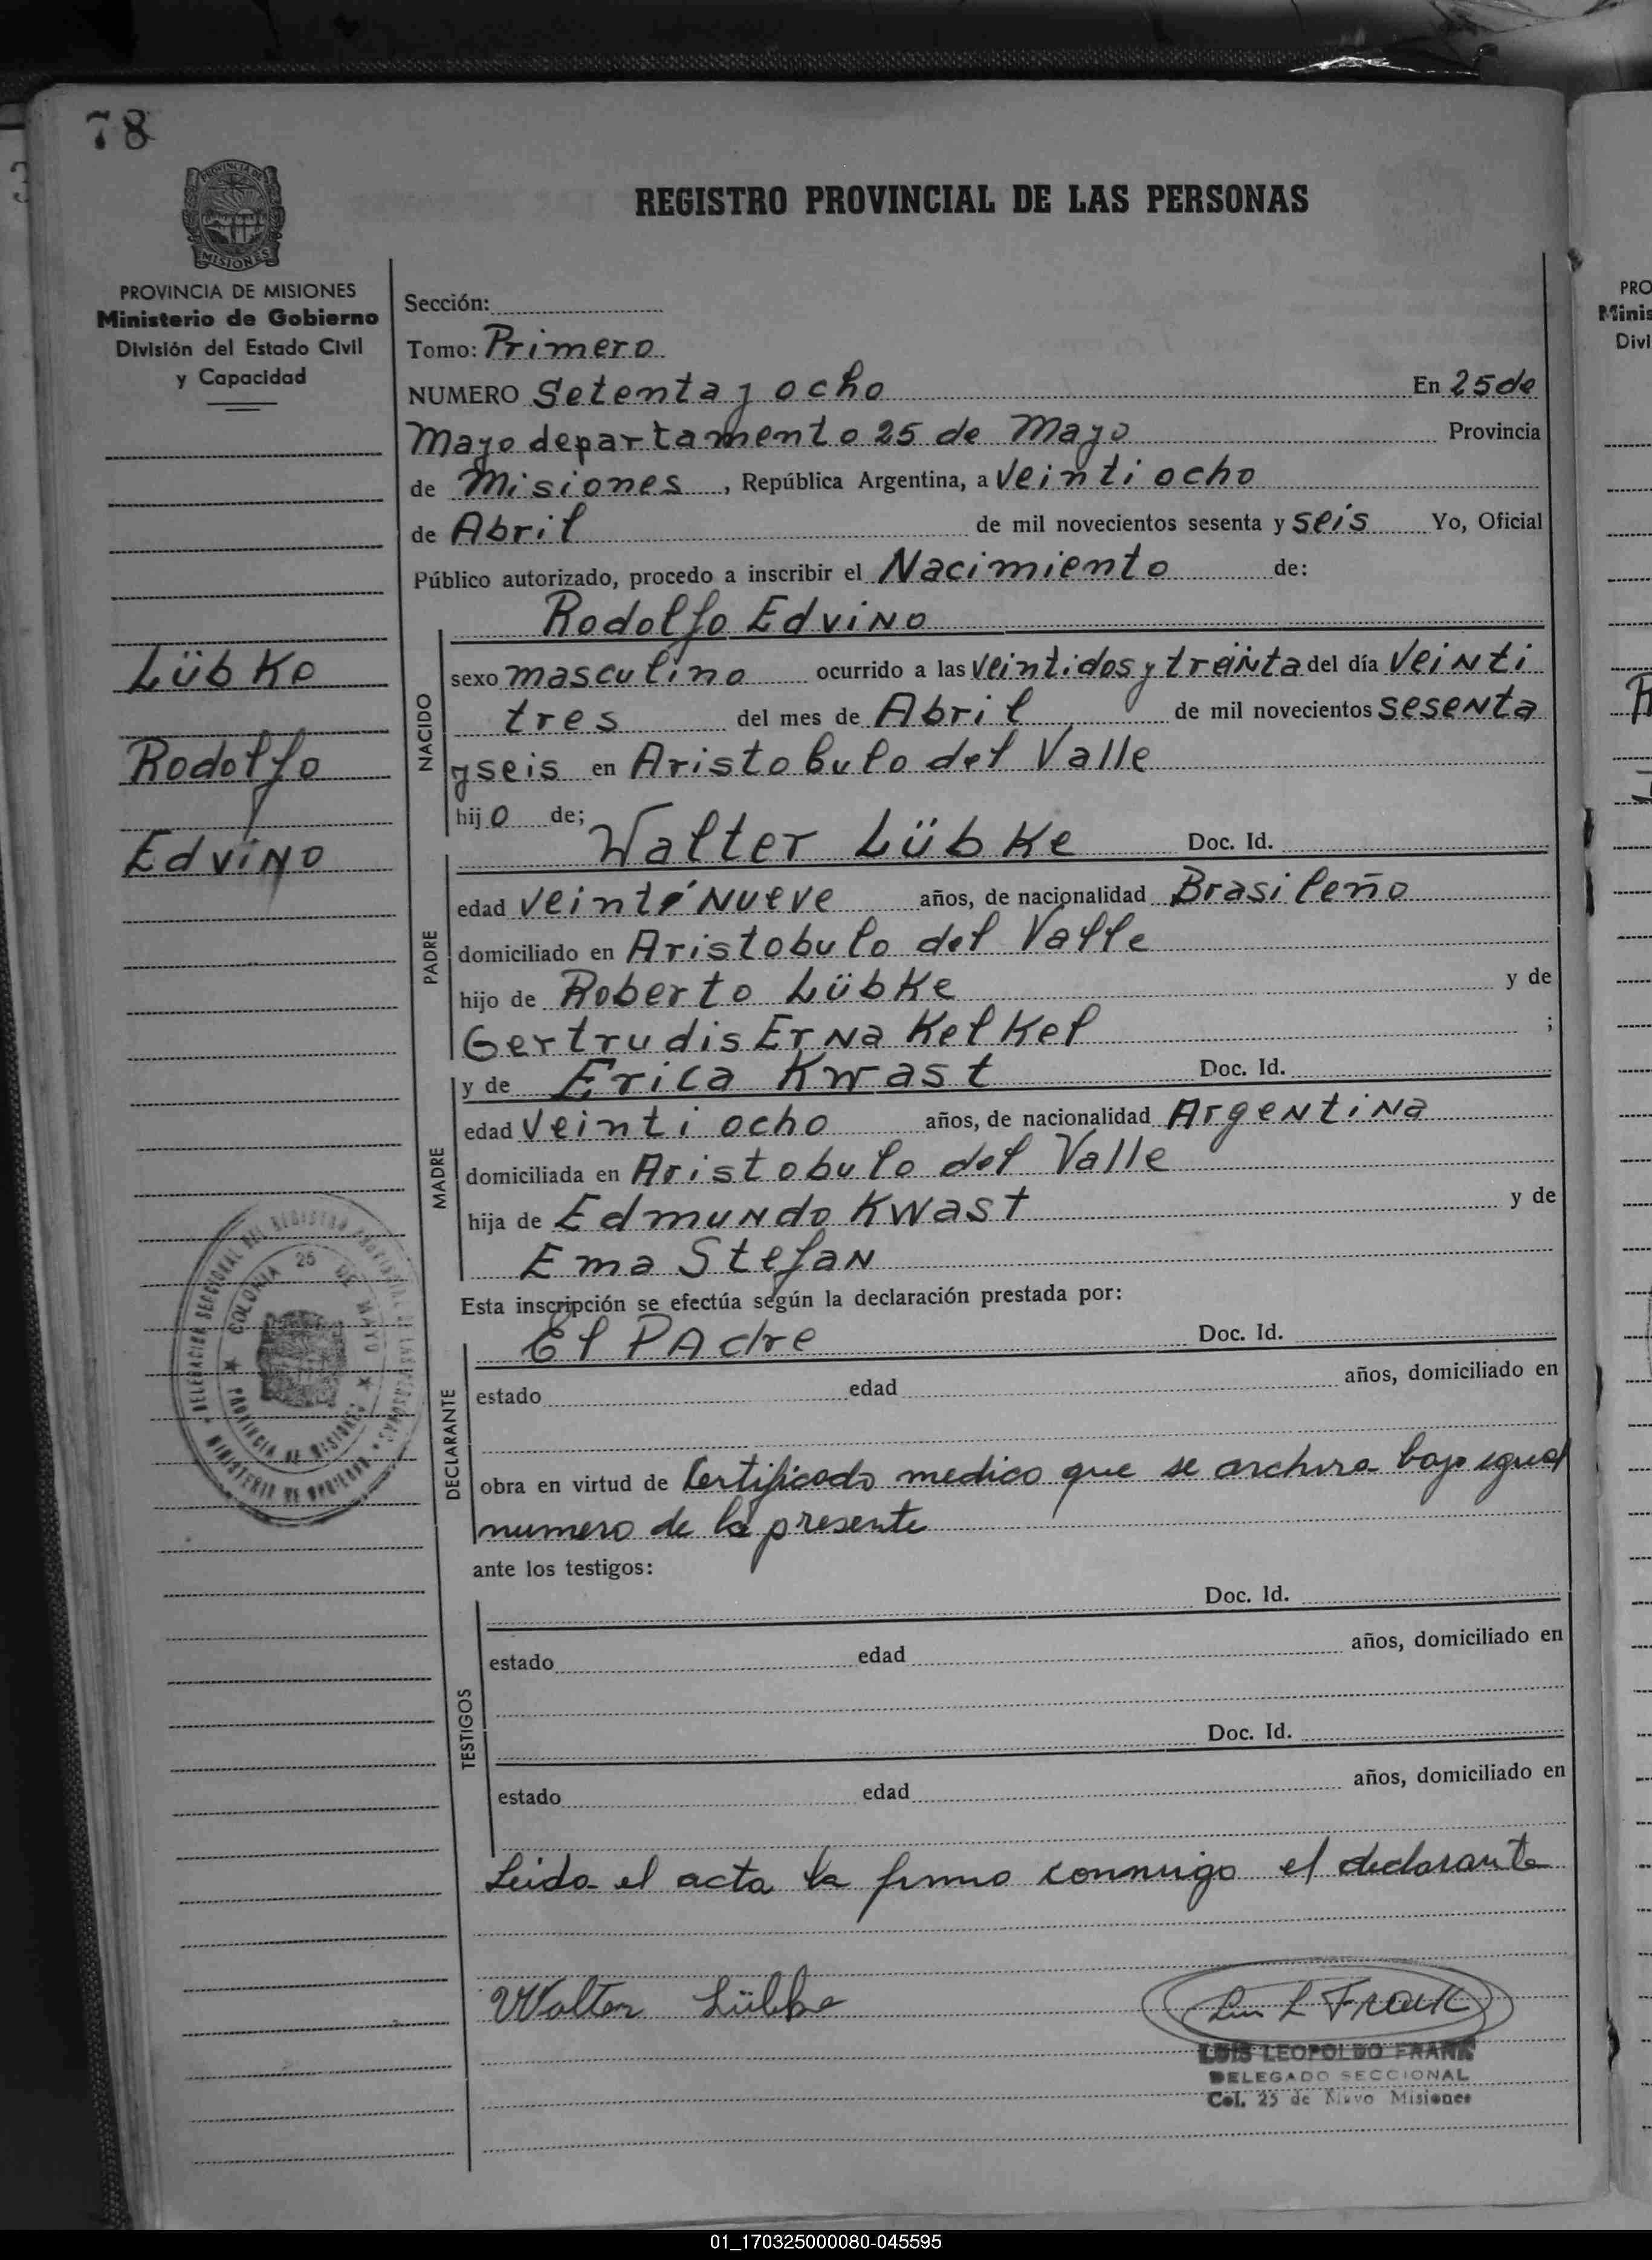 78
PROVINCIA DE MISIONES
REGISTRO PROVINCIAL DE LAS PERSONAS
PROVINCIA DE MISIONES
Ministerio de Gobierno
División del Estado Civil
y Capacidad
Sección:
Tomo: Primero
NUMERO Setenta y ocho En 25 de
Mayo departamento 25 de Mayo Provincia
de Misiones, República Argentina, a veinti ocho
de Abril de mil novecientos sesenta y seis Yo, Oficial
Público autorizado, procedo a inscribir el Nacimiento de:
Rodolfo Edvino
Lübke
Rodolfo
Edvino
NACIDO
sexo masculino ocurrido a las veintidos y treinta del día veinti
tres del mes de Abril de mil novecientos sesenta
y seis en Aristobulo del Valle
hijo de;
Walter Lübke Doc. Id.
PADRE
edad veinti nueve años, de nacionalidad Brasileño
domiciliado en Aristobulo del Valle
hijo de Roberto Lübke y de
Gertrudis Erna Kelkel ;
y de Erica Kwast Doc. Id.
MADRE
edad veinti ocho años, de nacionalidad Argentina
domiciliada en Aristobulo del Valle
hija de Edmundo Kwast y de
Ema Stefan
Esta inscripción se efectúa según la declaración prestada por:
El PAdre Doc. Id.
DECLARANTE
estado edad años, domiciliado en
obra en virtud de Certificado medico que se archiva bajo igual
numero de la presente
DELEGACION SECCIONAL DEL REGISTRO PROVINCIAL DE LAS PERSONAS
COLONIA 25 DE MAYO
PROVINCIA DE MISIONES
MINISTERIO DE GOBIERNO
ante los testigos:
Doc. Id.
TESTIGOS
estado edad años, domiciliado en
Doc. Id.
estado edad años, domiciliado en
Leida el acta la firma conmigo el declarante
Walter Lübke
Luis L Frank
LUIS LEOPOLDO FRANK
DELEGADO SECCIONAL
Col. 25 de Mayo Misiones
PRO
Minis
Divi
01_170325000080-045595